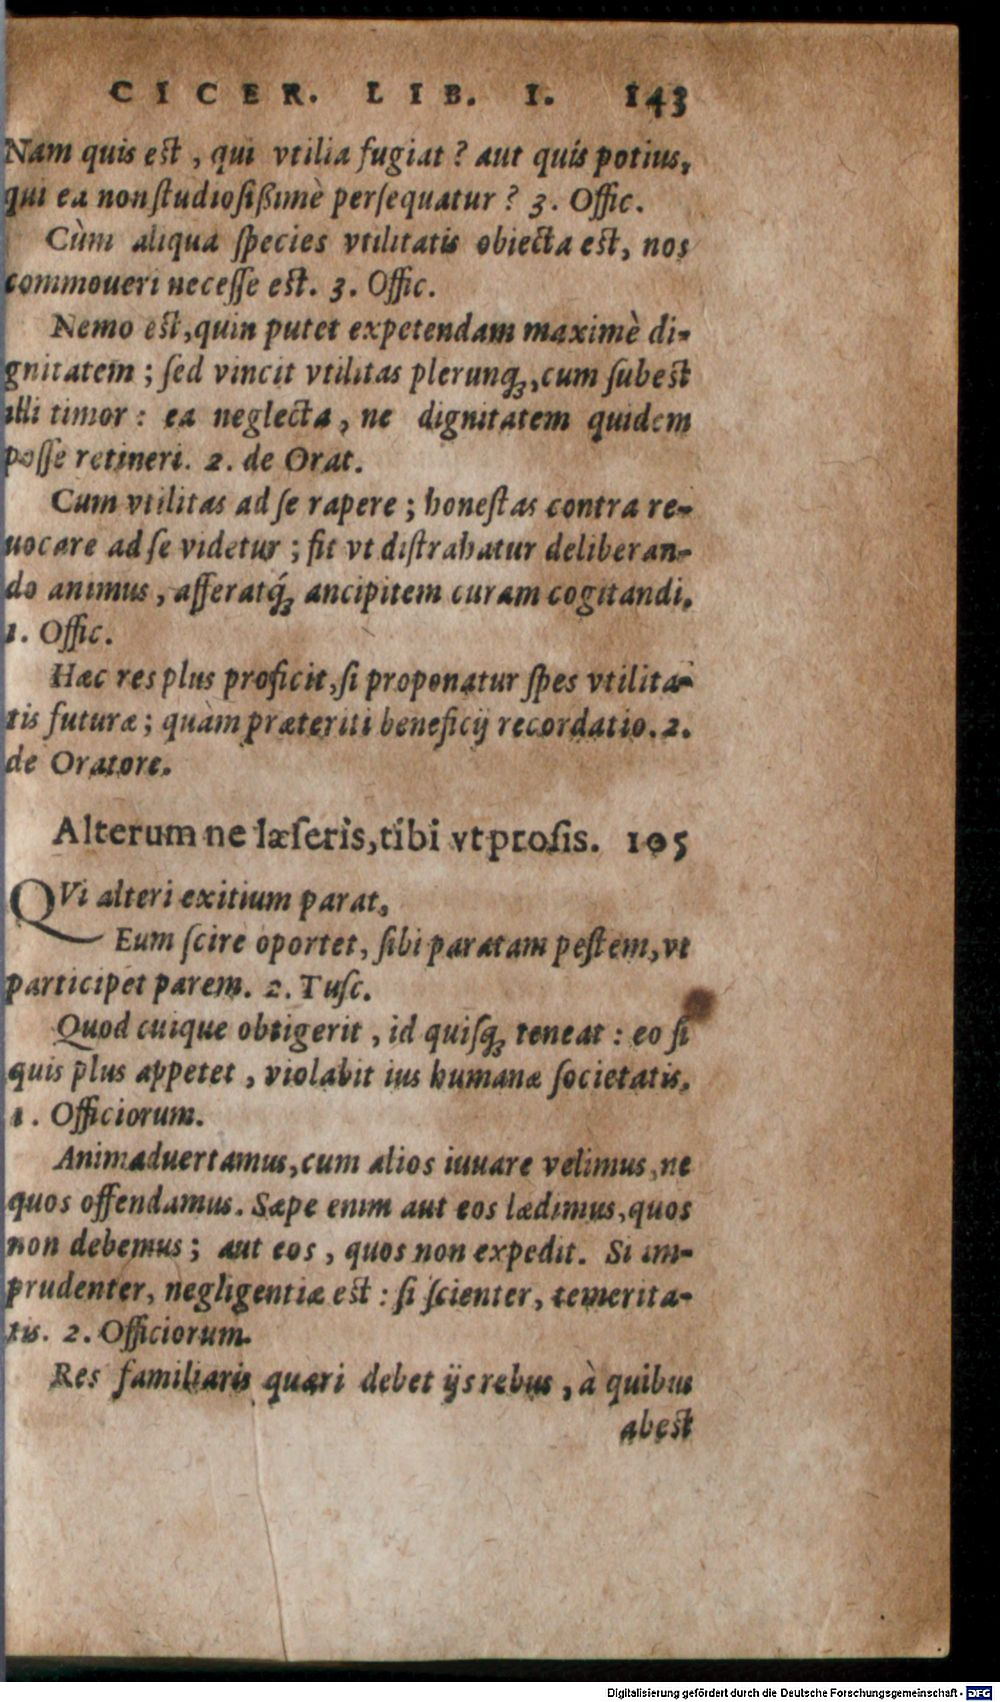 CICER. LIB. I. 143
Nam quis est, qui vtilia fugiat? aut quis potius,
qui ea non ſtudioſißimè perſequatur? 3. Offic.
Cùm aliqua ſpecies vtilitatis obiecta est, nos
commoueri neceſſe est. 3. Offic.
Nemo est, quin putet expetendam maximè di-
gnitatem; ſed vincit vtilitas plerunq́ꝫ, cum ſubest
illi timor: ea neglecta, ne dignitatem quidem
poſſe retineri. 2. de Orat.
Cum vtilitas ad ſe rapere; honeſtas contra re-
uocare ad ſe videtur; fit vt diſtrahatur deliberan-
do animus, afferatq́ꝫ ancipitem curam cogitandi.
1. Offic.
Hæc res plus proficit, ſi proponatur ſpes vtilita-
tis futuræ; quàm præteriti beneficij recordatio. 2.
de Oratore.
Alterum ne læſeris, tibi vt proſis. 105
QVi alteri exitium parat,
Eum ſcire oportet, ſibi paratam peſtem, vt
participet parem. 2. Tuſc.
Quod cuique obtigerit, id quiſqꝫ teneat: eo ſi
quis plus appetet, violabit ius humanæ ſocietatis.
1. Officiorum.
Animaduertamus, cum alios iuuare velimus, ne
quos offendamus. Sæpe enim aut eos lædimus, quos
non debemus; aut eos, quos non expedit. Si im-
prudenter, negligentiæ est: ſi ſcienter, temerita-
tis. 2. Officiorum.
Res familiaris quæri debet ijs rebus, à quibus
abest
Digitalisierung gefördert durch die Deutsche Forschungsgemeinschaft - DFG